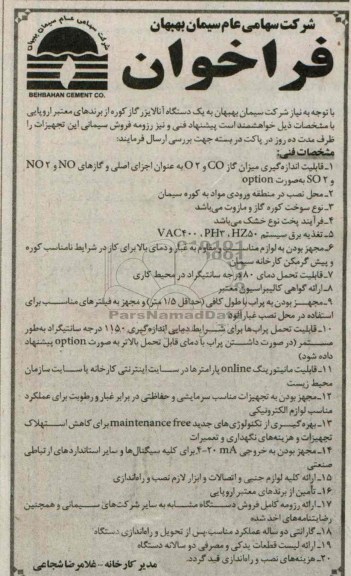 شرکت سهامی عام سیمان بهبهان
فراخوان
شرکت سهامی عام سیمان بهبهان
BEHBAHAN CEMENT CO.
با توجه به نیاز شرکت سیمان بهبهان به یک دستگاه آنالایزر گاز کوره از برندهای معتبر اروپایی
با مشخصات ذیل خواهشمند است پیشنهاد فنی و نیز رزومه فروش سیمانی این تجهیزات را
ظرف مدت ده روز در پاکت در بسته جهت بررسی ارسال فرمایند:
مشخصات فنی:
۱-قابلیت اندازه‌گیری میزان گاز CO و O۲ به عنوان اجزای اصلی و گازهای NO و NO۲
و SO۲ به‌صورت option
۲-محل نصب در منطقه ورودی مواد به کوره سیمان
۳-نوع سوخت کوره گاز و مازوت می‌باشد
۴-فرآیند پخت نوع خشک می‌باشد
۵-تغذیه برق سیستم VAC۴۰۰ ،PH۳ ،HZ۵۰
۶-مجهز بودن به لوازم مناسب مقاوم به غبار و دمای بالا برای کار در شرایط نامناسب کوره
و پیش گرمکن کارخانه سیمان
۷-قابلیت تحمل دمای ۸۰ درجه سانتیگراد در محیط کاری
۸-ارائه گواهی کالیبراسیون معتبر
۹-مجهز بودن به پراب با طول کافی (حداقل ۱/۵ متر) و مجهز به فیلترهای مناسب برای
استفاده در محل نصب غبارآلود
۱۰-قابلیت تحمل پراب‌ها برای شرایط دمایی اندازه‌گیری ۱۱۵۰ درجه سانتیگراد به‌طور
مستمر (در صورت داشتن پراب با دمای قابل تحمل بالاتر به صورت option پیشنهاد
داده شود)
۱۱-قابلیت مانیتورینگ online پارامترها در سایت اینترنتی کارخانه یا سایت سازمان
محیط زیست
۱۲-مجهز بودن به تجهیزات مناسب سرمایشی و حفاظتی در برابر غبار و رطوبت برای عملکرد
مناسب لوازم الکترونیکی
۱۳-بهره‌گیری از تکنولوژی‌های جدید maintenance free برای کاهش استهلاک
تجهیزات و هزینه‌های نگهداری و تعمیرات
۱۴-مجهز بودن به خروجی ۴-۲۰ mA برای کلیه سیگنال‌ها و سایر استانداردهای ارتباطی
صنعتی
۱۵-ارائه کلیه لوازم جنبی و اتصالات و ابزار لازم نصب و راه‌اندازی
۱۶-تأمین از برندهای معتبر اروپایی
۱۷-ارائه رزومه کامل فروش دستگاه مشابه به سایر شرکت‌های سیمانی و همچنین
رضایتنامه‌های اخذ شده
۱۸-گارانتی دو ساله عملکرد مناسب پس از تحویل و راه‌اندازی دستگاه
۱۹-ارائه لیست قطعات یدکی و مصرفی دو سالانه دستگاه
۲۰-هزینه‌های نصب و راه‌اندازی قید گردد.
مدیر کارخانه - غلامرضا شجاعی